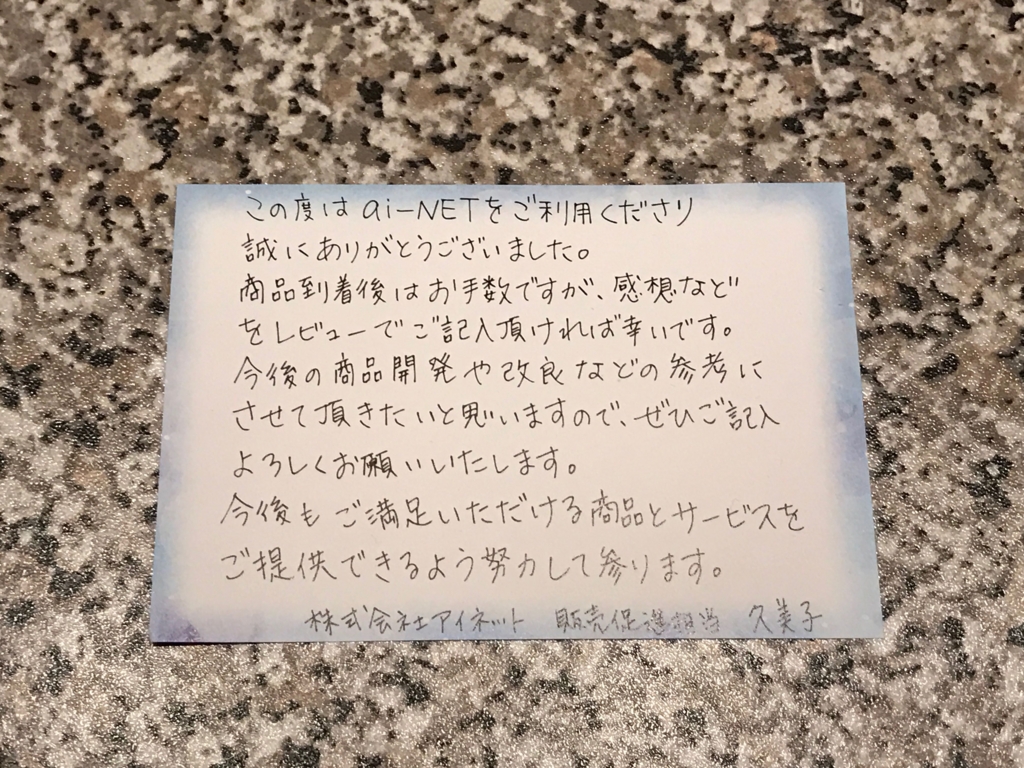 この度はai-NETをご利用くださり
誠にありがとうございました。
商品到着後はお手数ですが、感想など
をレビューでご記入頂ければ幸いです。
今後の商品開発や改良などの参考に
させて頂きたいと思いますので、ぜひご記入
よろしくお願いいたします。
今後もご満足いただける商品とサービスを
ご提供できるよう努力して参ります。
株式会社アイネット 販売促進担当 久美子